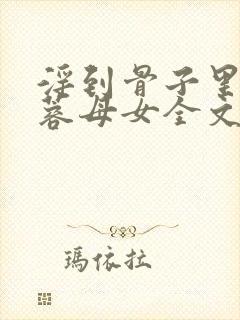 淫到骨子里
蓉母女全文
瑪依拉